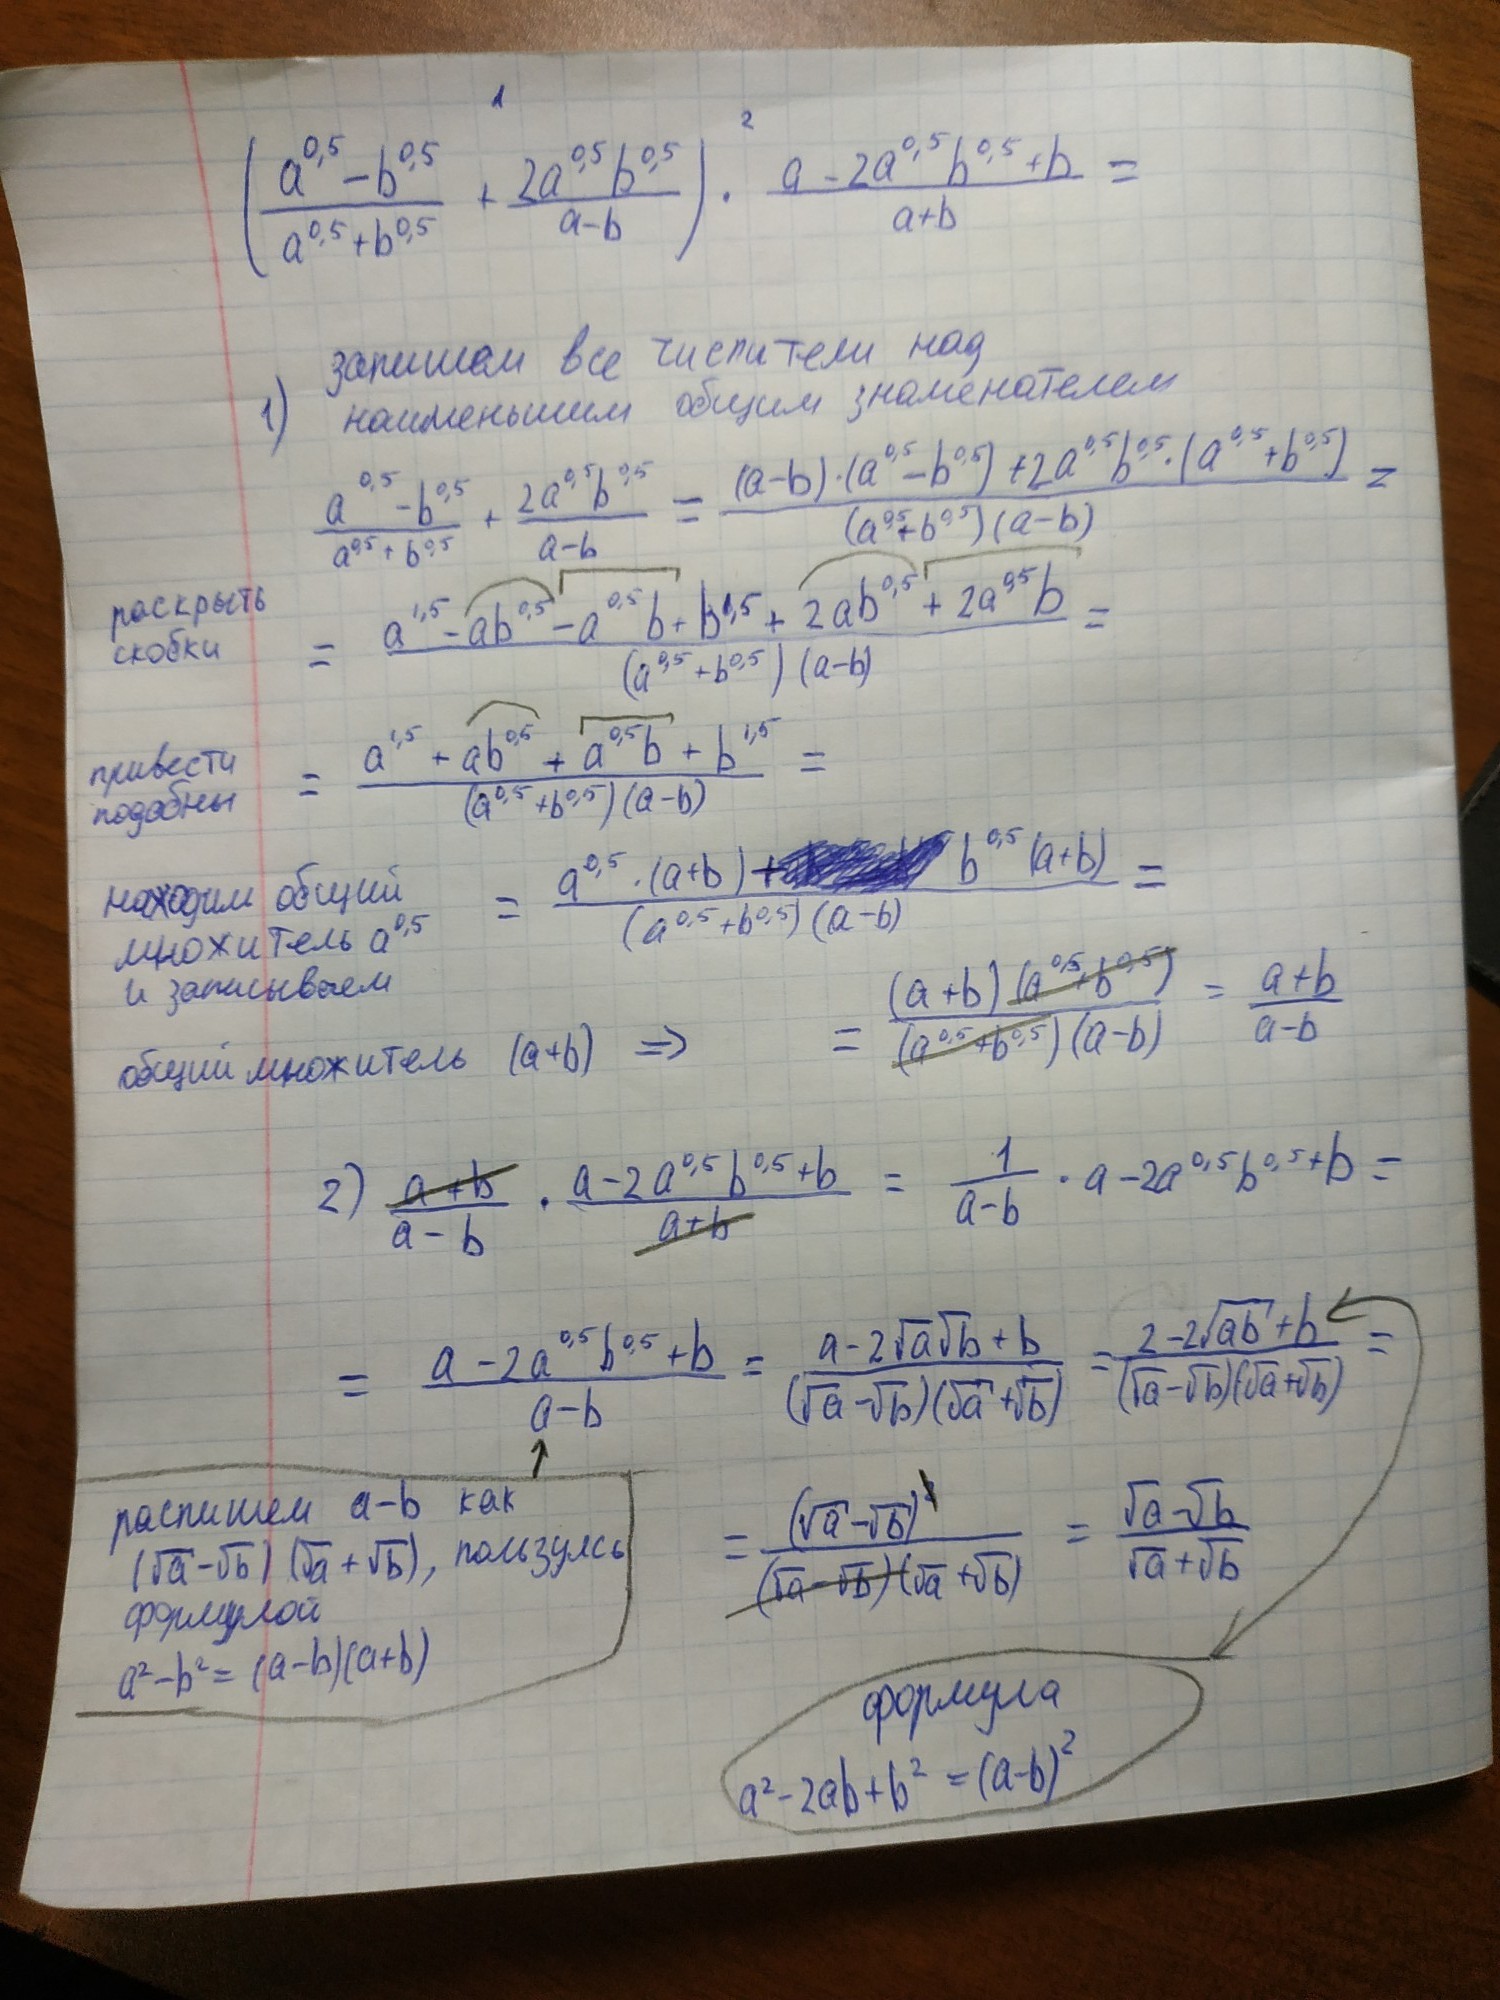 1 2
(a^0,5 - b^0,5 / a^0,5 + b^0,5 + 2a^0,5 b^0,5 / a-b) · a - 2a^0,5 b^0,5 + b / a+b =
запишем все числители над
1) наименьшим общим знаменателем
a^0,5 - b^0,5 / a^0,5 + b^0,5 + 2a^0,5 b^0,5 / a-b = (a-b)·(a^0,5 - b^0,5) + 2a^0,5 b^0,5·(a^0,5 + b^0,5) / (a^0,5 + b^0,5)(a-b) =
раскрыть
скобки
= a^1,5 - ab^0,5 - a^0,5 b + b^1,5 + 2ab^0,5 + 2a^0,5 b / (a^0,5 + b^0,5)(a-b) =
привести
подобны
= a^1,5 + ab^0,5 + a^0,5 b + b^1,5 / (a^0,5 + b^0,5)(a-b) =
находим общий
множитель a^0,5
и записываем
= a^0,5·(a+b) + b^0,5(a+b) / (a^0,5 + b^0,5)(a-b) =
общий множитель (a+b) => = (a+b)(a^0,5 + b^0,5) / (a^0,5 + b^0,5)(a-b) = a+b / a-b
2) a+b / a-b · a - 2a^0,5 b^0,5 + b / a+b = 1 / a-b · a - 2a^0,5 b^0,5 + b =
= a - 2a^0,5 b^0,5 + b / a-b = a - 2√a√b + b / (√a-√b)(√a+√b) = 2 - 2√ab + b / (√a-√b)(√a+√b) =
распишем a-b как
(√a-√b)(√a+√b), пользуясь
формулой
a²-b² = (a-b)(a+b)
= (√a-√b)² / (√a-√b)(√a+√b) = √a-√b / √a+√b
формула
a²-2ab+b² = (a-b)²